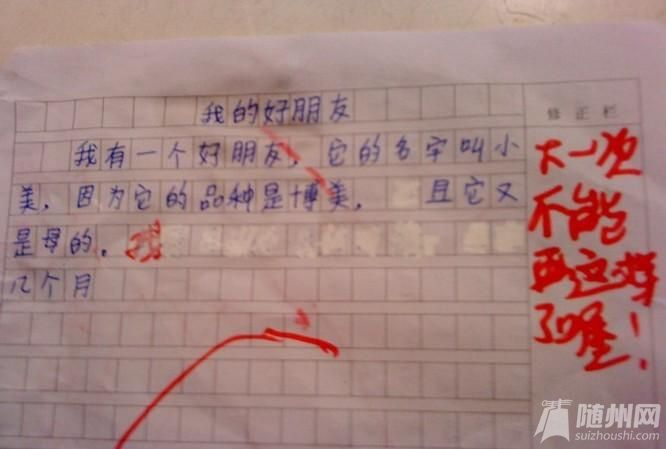 我的好朋友
修正栏
我有一个好朋友，它的名字叫小
美，因为它的品种是博美，且它又
是母的。
几个月
下一次
不能
再这样
了喔！
随州网
suizhoushi.com